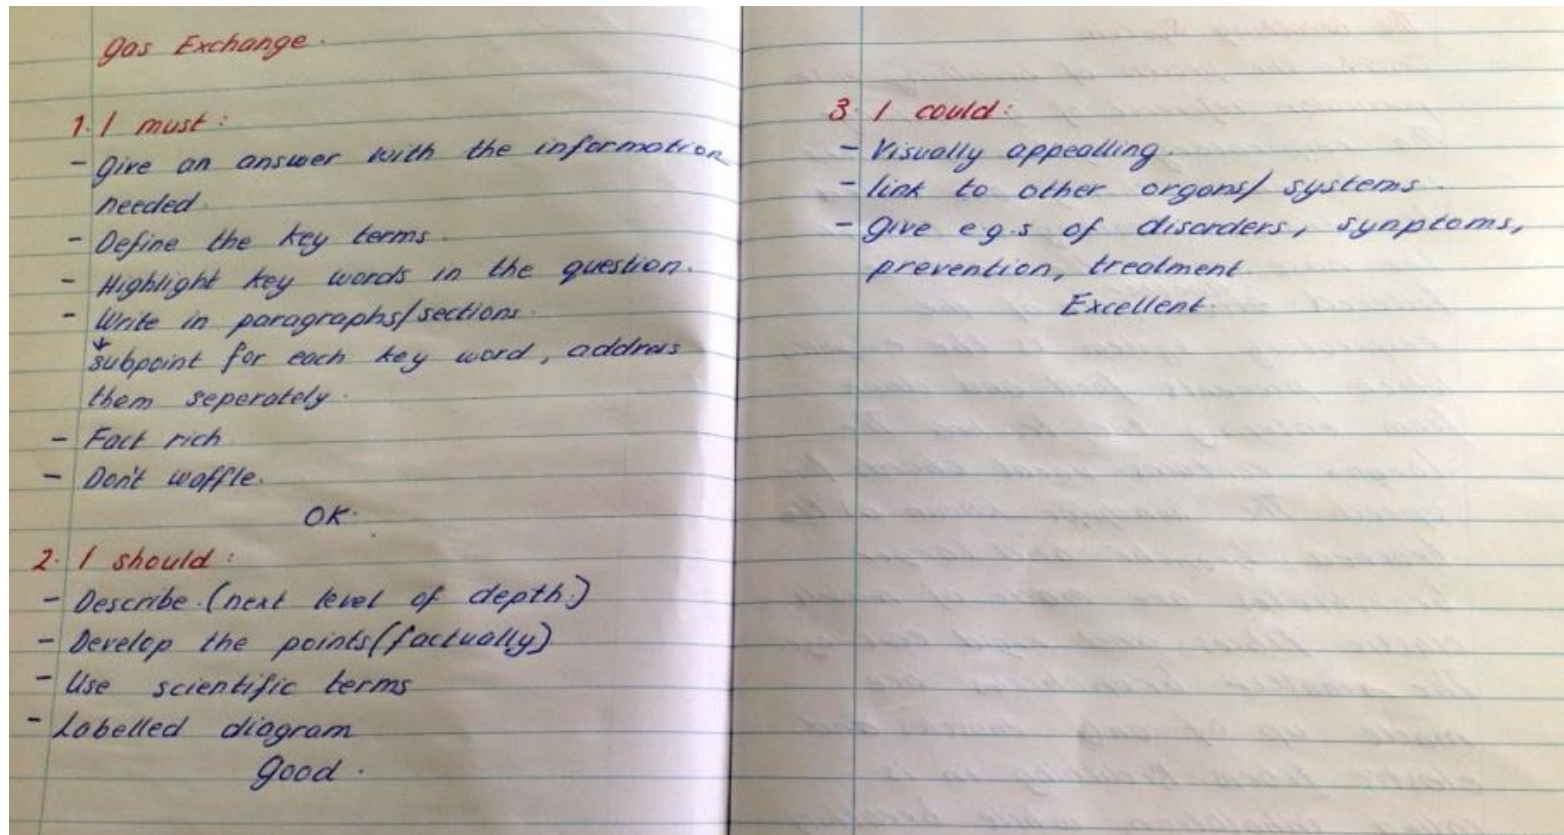 Gas Exchange.
1. I must:
- Give an answer with the information
needed.
- Define the key terms.
- Highlight key words in the question.
- Write in paragraphs/sections.
↓
subpoint for each key word, address
them seperately.
- Fact rich
- Don't waffle.
OK.
2. I should:
- Describe. (next level of depth.)
- Develop the points (factually)
- Use scientific terms
- Labelled diagram
Good.
3. I could:
- Visually appealling.
- link to other organs/ systems.
- Give e.g.s of disorders, symptoms,
prevention, treatment.
Excellent.